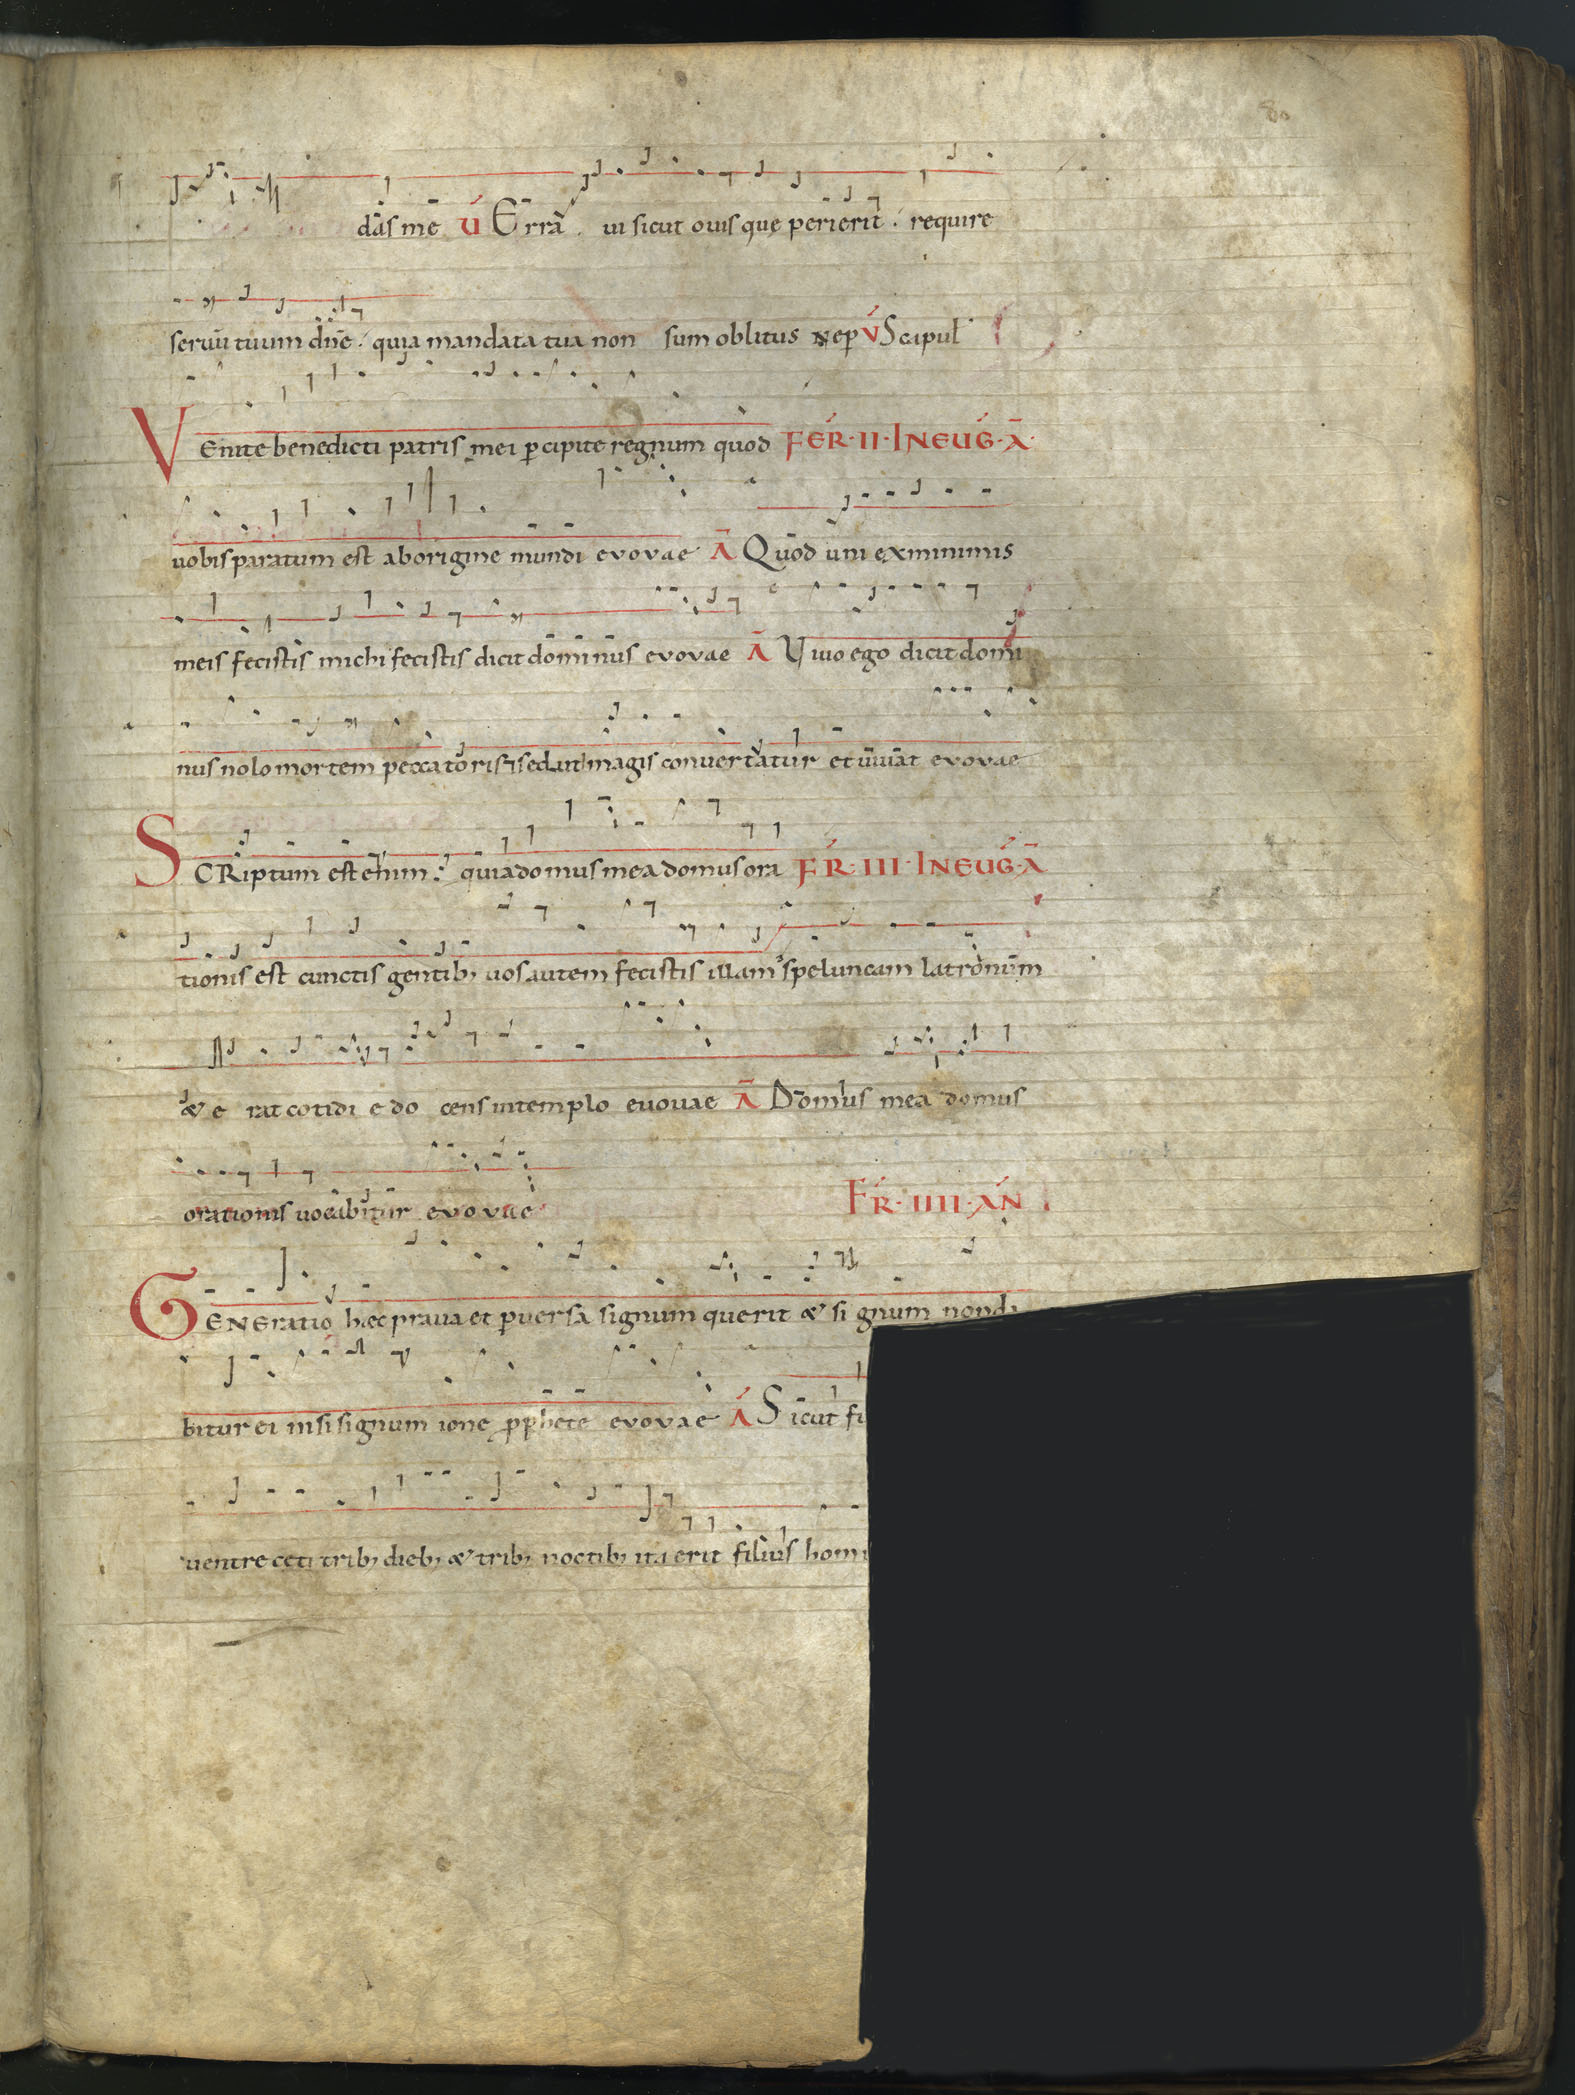 80
das me v̄ Erra ui sicut ouis quę perierit · require
seruū tuum dn̄e · quia mandata tua non sum oblitus Nep V̄ Scapul
VEnite benedicti patris mei p̄cipite regnum quod FER · II · IN EUG · A
uobis paratum est ab origine mundi evovae A Quod uni ex minimis
meis fecistis michi fecistis dicit dominus evovae A Viuo ego dicit domi
nus nolo mortem peccatoris sed ut magis conuertatur et uiuat evovae
SCRiptum est enim · quia domus mea domus ora FR · III · IN EUG · A
tionis est cunctis gentib; uos autem fecistis illam speluncam latronum
& e rat cotidi e do cens in templo euouae A Domus mea domus
orationis uocabitur evovae FR · IIII · AN
GENEratio hęc praua et puersa signum querit & si gnum non da
bitur ei nisi signum ione pphete evovae A Sicut fu
uentre ceti trib; dieb; & trib; noctib; ita erit filius homi